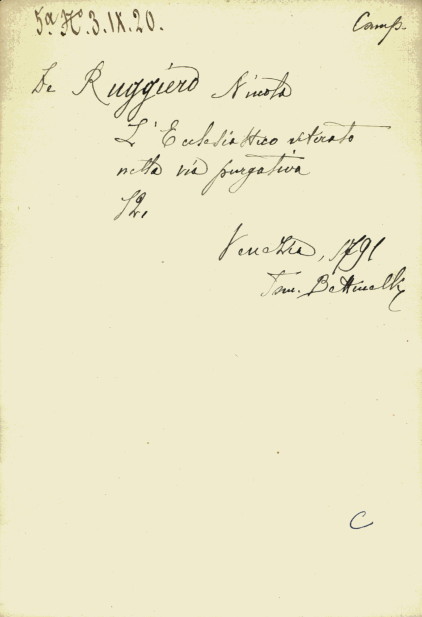 5ª Hº.3.IX.20. Camp.
De Ruggiero Nicola
L'Ecclesiastico ritirato
nella via purgativa
12.
Venezia, 1791
Tom. Bettinelli
C